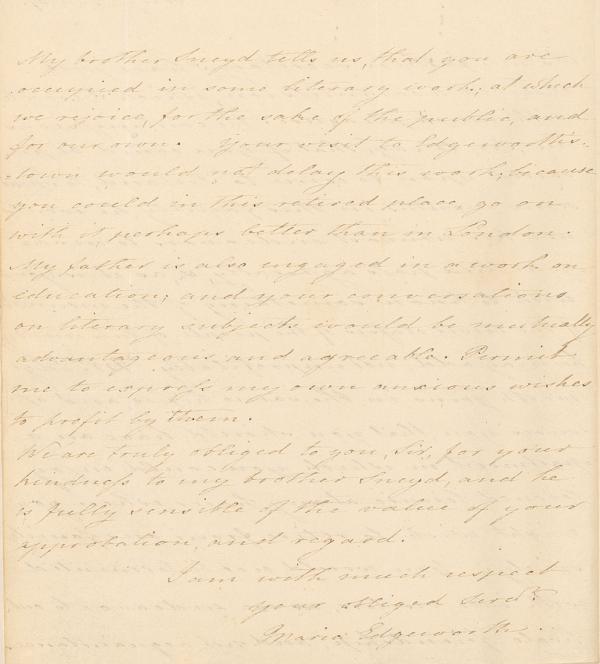 My brother Sneyd tells us, that you are
occupied in some literary work; at which
we rejoice, for the sake of the public, and
for our own. Your visit to Edgeworths-
-town would not delay this work, because
you could in this retired place, go on
with it perhaps better than in London.
My father is also engaged in a work on
education; and your conversations
on literary subjects would be mutually
advantageous and agreeable. Permit
me to express my own anxious wishes
to profit by them.
We are truly obliged to you, Sir, for your
kindness to my brother Sneyd, and he
is fully sensible of the value of your
approbation and regard.
I am with much respect
your obliged Servt.
Maria Edgeworth.